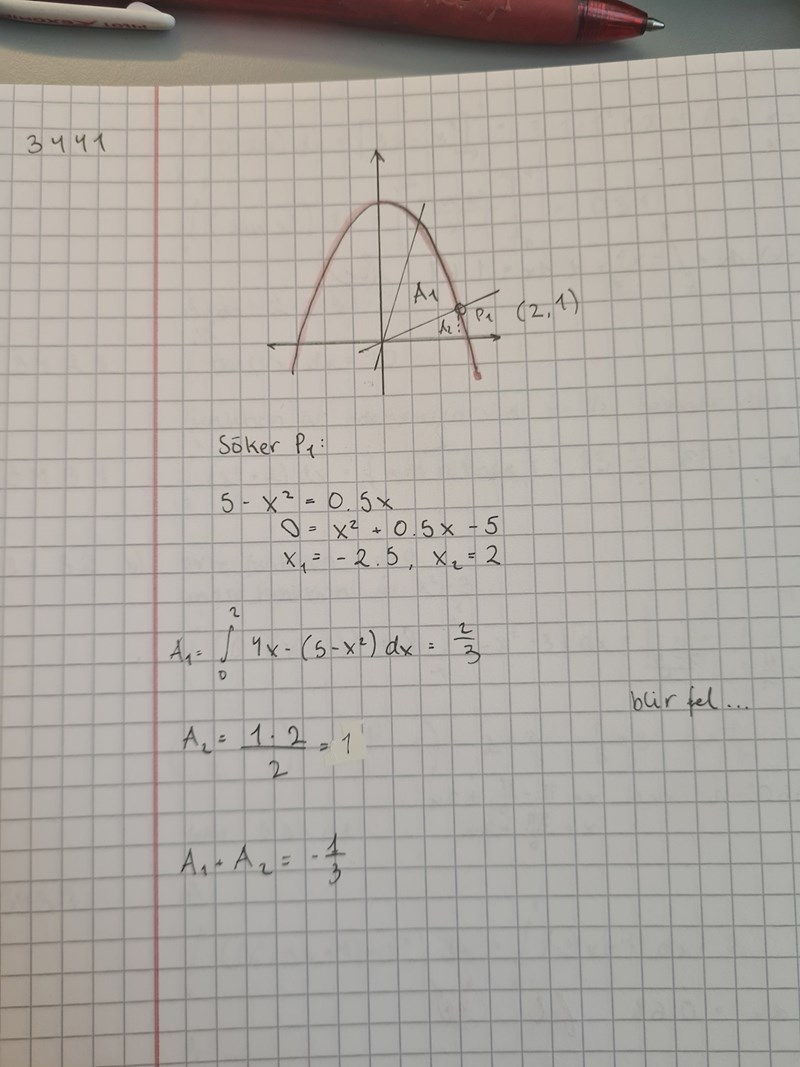 3441
A₁
A₂
P₁ (2,1)
Söker P₁:
5 - x² = 0.5x
0 = x² + 0.5x - 5
x₁ = -2.5, x₂ = 2
A₁ = ∫₀² 4x - (5-x²) dx = 2/3
blir fel...
A₂ = (1·2)/2 = 1
A₁ - A₂ = -1/3